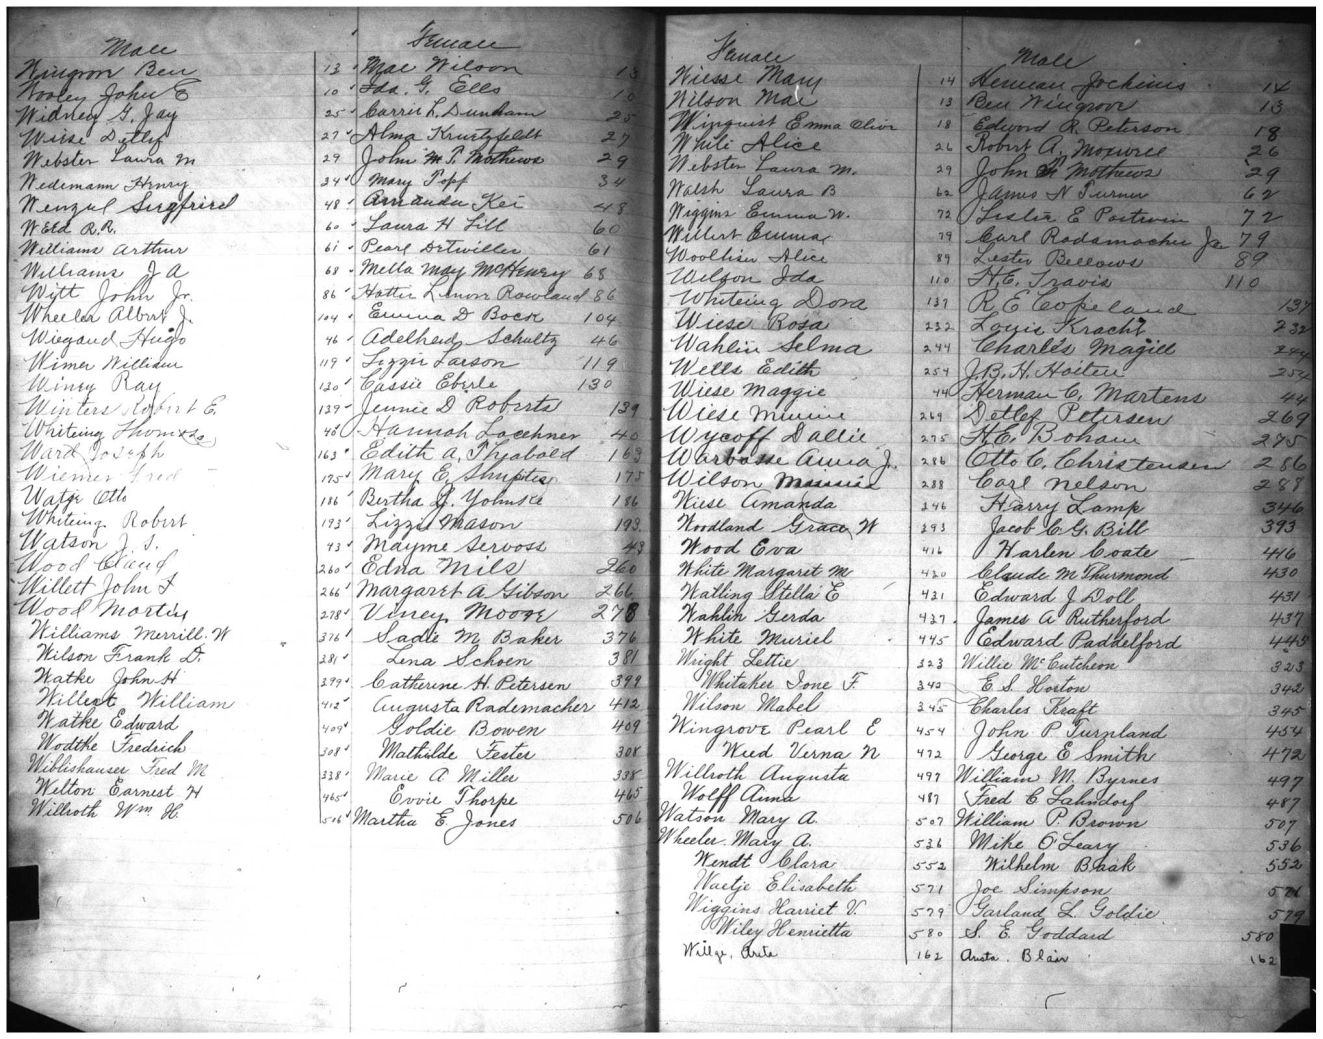 Male Female
Wingrov Ben 13 Mae Wilson 13
Wooley John E 10 Ida. G. Ells 10
Widney G. Jay 25 Carrie L. Dunham 25
Wiese Detlef 27 Alma Kruetzfeldt 27
Webster Laura M 29 John M. P. Mathews 29
Wedemann Henry 34 Mary Popp 34
Wenzul Siegfried 48 Amanda Kei 48
Weed R.R. 60 Laura H Lill 60
Williams Arthur 61 Pearl Detwiller 61
Williams J A 68 Metta May McHenry 68
Witt John Jr. 86 Hattie Lenorr Rowland 86
Wheeler Albert J. 104 Emma D Bock 104
Wiegand Hugo 46 Adelheid Schultz 46
Wimer William 119 Lizzie Larson 119
Winey Ray 130 Cassie Eberle 130
Winters Robert E. 139 Jennie D Roberts 139
Whiteing Thomas 40 Hannah Lacehner 40
Ward Joseph 163 Edith A, Theabold 163
Wiemer Fred 175 Mary E, Shuptes 175
Watje Otto 186 Bertha J. Yohnke 186
Whiteing Robert 193 Lizzie Mason 193
Watson J. S. 43 Mayme Servoss 43
Wood Claud 260 Edna Mils 260
Willett John F 266 Margaret A Gibson 266
Wood Martin 278 Viney Moore 278
Williams Merrill W 376 Sadie M Baker 376
Wilson Frank D. 381 Lena Schoen 381
Watke John H 399 Catherine H. Petersen 399
Willert William 412 Augusta Rademacher 412
Watke Edward 409 Goldie Bowen 409
Wodtke Fredrich 308 Mathilde Fester 308
Wiblishauser Fred M 338 Marie A Miller 338
Welton Earnest H 465 Evvie Thorpe 465
Willroth Wm H. 506 Martha E. Jones 506
Female Male
Wiesse Mary 14 Herman Jochims 14
Wilson Mae 13 Ben Wingrov 13
Winquist Emma Olivi 18 Edward R. Peterson 18
White Alice 26 Robert A. 26
Webster Laura M. 29 John P. Mathews 29
Walsh Laura B 62 James N Turner 62
Wiggins Emma W. 72 Lesler E Portwin 72
Willert Emma 79 Carl Radamacher Jr 79
Woolliser Alice 89 Lester Bellows 89
Wilson Ida 110 H.E. Travis 110
Whiteing Dora 137 R E Copeland 137
Wiese Rosa 232 Louie Kracht 232
Wahlin Selma 244 Charles Magill 244
Wells Edith 254 J.B.H. Hoiten 254
Wiese Maggie 44 Herman C. Martens 44
Wiese Minnie 269 Detlef Petersen 269
Wycoff Dallie 275 H.E. Bonam 275
Warbasse Anna J. 286 Otto C. Christensen 286
Wilson Minnie 288 Carl Nelson 288
Wiese Amanda 346 Harry Lamp 346
Woodland Grace W 393 Jacob C G. Bill 393
Wood Eva 416 Harlen Coate 416
White Margaret M 430 Claude M Thurmond 430
Watling Stella E 431 Edward J Doll 431
Wahlin Gerda 437 James A Rutherford 437
White Muriel 445 Edward Paddelford 445
Wright Lettie 323 Willie McCutcheon 323
Whitaker Ione F. 342 E S. Horton 342
Wilson Mabel 345 Charles Kraft 345
Wingrove Pearl E 454 John P Turnland 454
Weed Verna N 472 George E Smith 472
Willroth Augusta 497 William M. Byrnes 497
Wolff Anna 487 Fred C Lahndorf 487
Watson Mary A. 507 William P. Brown 507
Wheeler Mary A. 536 Mike O'Leary 536
Wendt Clara 552 Wilhelm Baak 552
Waetje Elisabeth 571 Joe Simpson 571
Wiggins Harriet V. 579 Garland L. Goldie 579
Wiley Henrietta 580 S. E. Goddard 580
162 Blair 162